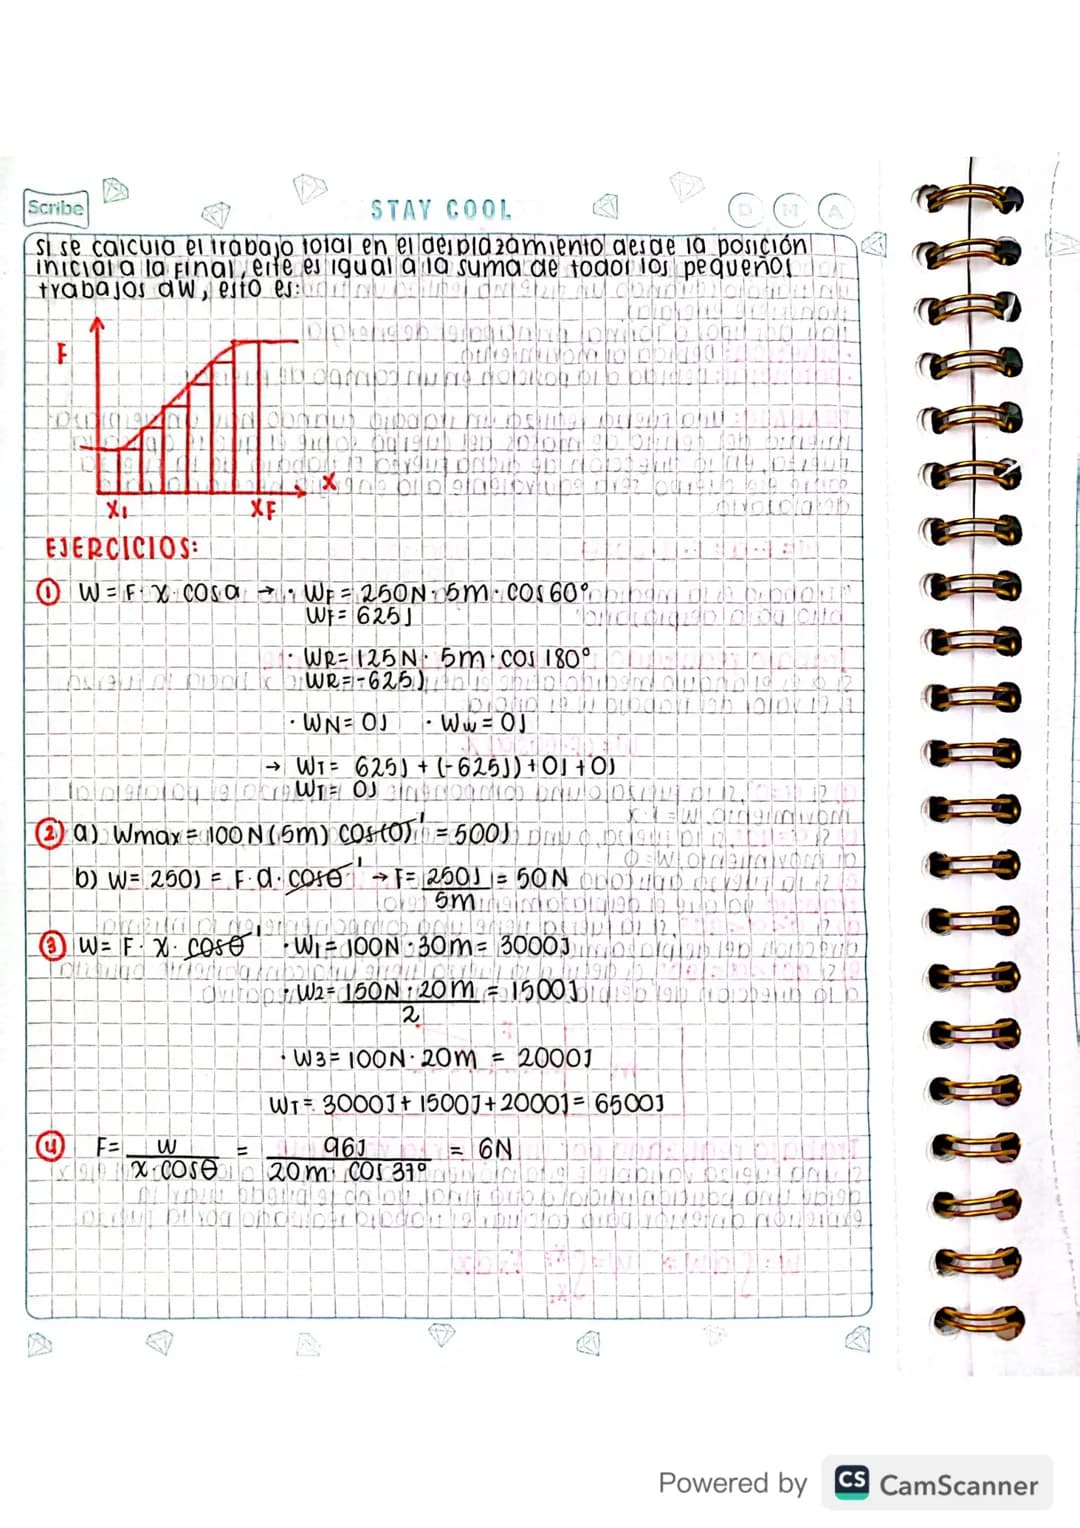 Scribe
STAY COOL
D M A
si se calcula el trabajo total en el desplazamiento desde la posición
inicial a la final, este es igual a la suma de todos los pequeños
trabajos dw, esto es:
F
X
XI XF
EJERCICIOS:
① W = F · X · cos α → · WF = 250N · 5m · cos 60°
WF = 625J
· WR = 125N · 5m · cos 180°
WR = -625J
· WN = 0J · Ww = 0J
→ WT = 625J + (-625J) + 0J + 0J
WT = 0J
② a) Wmax = 100N (5m) cos(0)¹ = 500J
b) W = 250J = F · d · cosθ¹ → F = 250J = 50N
5m
③ W = F · X · cosθ¹ · W1 = 100N · 30m = 3000J
· W2 = 150N · 20m = 1500J
2
· W3 = 100N · 20m = 2000J
WT = 3000J + 1500J + 2000J = 6500J
④ F = W = 96J = 6N
X · cosθ 20m · cos 37°
Powered by CS CamScanner